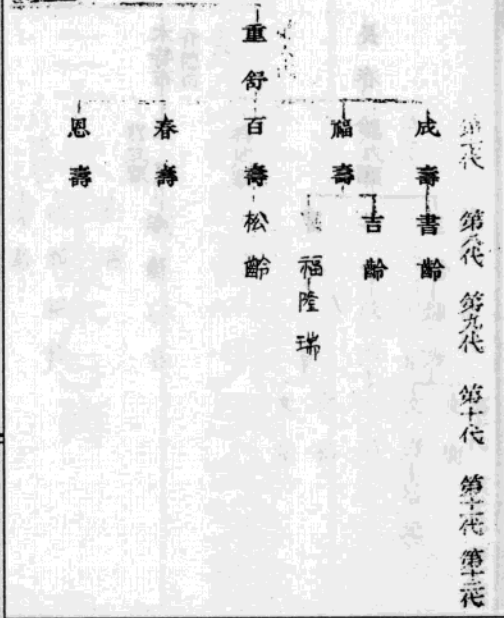 第七代
第八代
第九代
第十代
第十一代
第十二代
重舒
成壽
書齡
福壽
吉齡
福隆瑞
百壽
松齡
春壽
恩壽